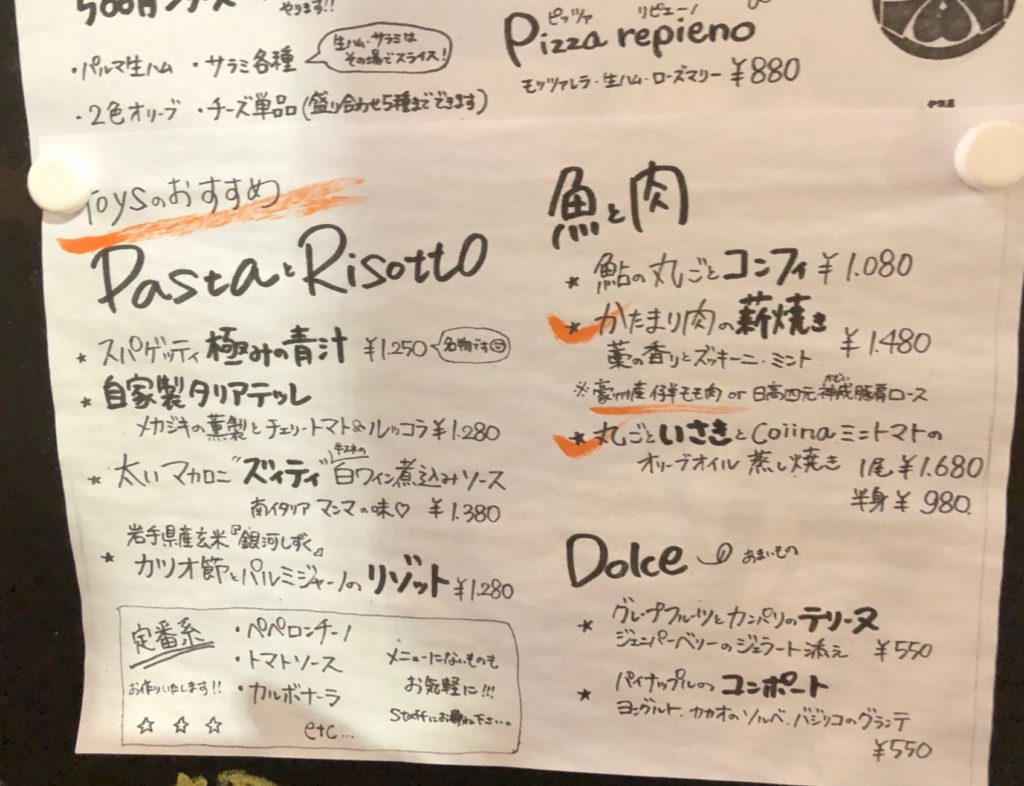 500円シリーズ
やります!!
・パルマ生ハム ・サラミ各種
生ハム・サラミは
その場でスライス!
・2色オリーブ ・チーズ単品(盛り合わせ5種までできます)
ピッツァ リピエーノ
Pizza repieno
モッツァレラ・生ハム・ローズマリー ¥880
Toysのおすすめ
PastaとRisotto
★ スパゲッティ 極みの青汁 ¥1.250 名物です
★ 自家製タリアテッレ
メカジキの薫製とチェリートマト&ルッコラ ¥1.280
★ 太いマカロニ"ズィティ" 牛スネの白ワイン煮込みソース
南イタリア マンマの味♡ ¥1.380
岩手県産玄米『銀河しずく』
★ カツオ節とパルミジャーノのリゾット ¥1.280
定番系
お作りいたします!!
☆ ☆ ☆
・ペペロンチーノ
・トマトソース
・カルボナーラ
etc...
メニューにないものも
お気軽に!!!
Staffにお尋ね下さい。
魚と肉
★ 鮎の丸ごとコンフィ ¥1.080
★ かたまり肉の薪焼き
藁の香りとズッキーニ・ミント ¥1.480
※豪州産仔羊モモ肉 or 日高四元豚肩ロース
★ 丸ごといさきとCoiinaミニトマトの
オリーブオイル 蒸し焼き 1尾 ¥1.680
半身 ¥980
Dolce あまいもの
★ グレープフルーツとカンパリのテリーヌ
ジュニパーベリーのジェラート添え ¥550
★ パイナップルのコンポート
ヨーグルト、カカオのソルベ、バジリコのグランテ
¥550